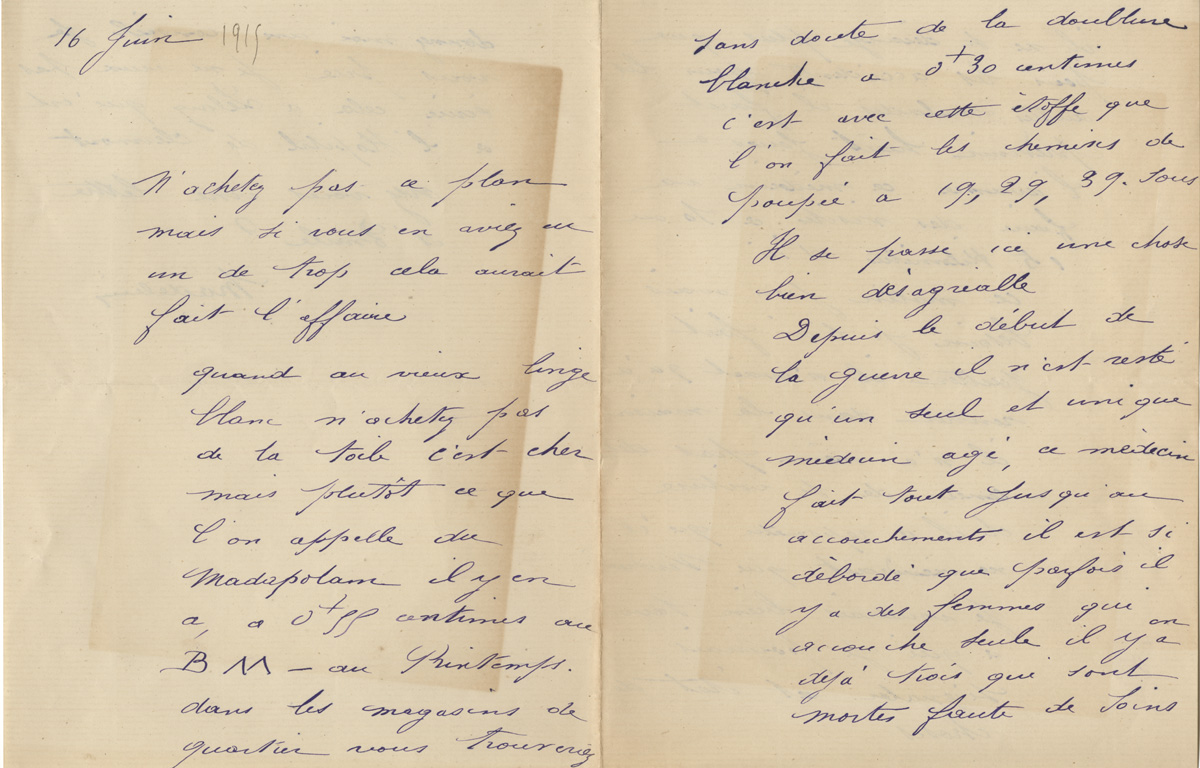 16 Juin 1915
N'achetez pas ce plan
mais si vous en aviez eu
un de trop cela aurait
fait l'affaire
quand au vieux linge
blanc n'achetez pas
de la toile c'est cher
mais plutôt ce que
l'on appelle du
Madapolam il y en
a, a 0f55 centimes au
B M — au Printemps.
dans les magasins de
quartier vous trouverez
sans doute de la doublure
blanche a 0f30 centimes
c'est avec cette étoffe que
l'on fait les chemises de
poupée a 19, 29, 39. sous
Il se passe ici une chose
bien désagréable
Depuis le début de
la guerre il n'est resté
qu'un seul et unique
médecin agé, ce médecin
fait tout jusqu'au
accouchements il est si
débordé que parfois il
y a des femmes qui on
accouche seule il y a
déjà trois qui sont
mortes faute de soins